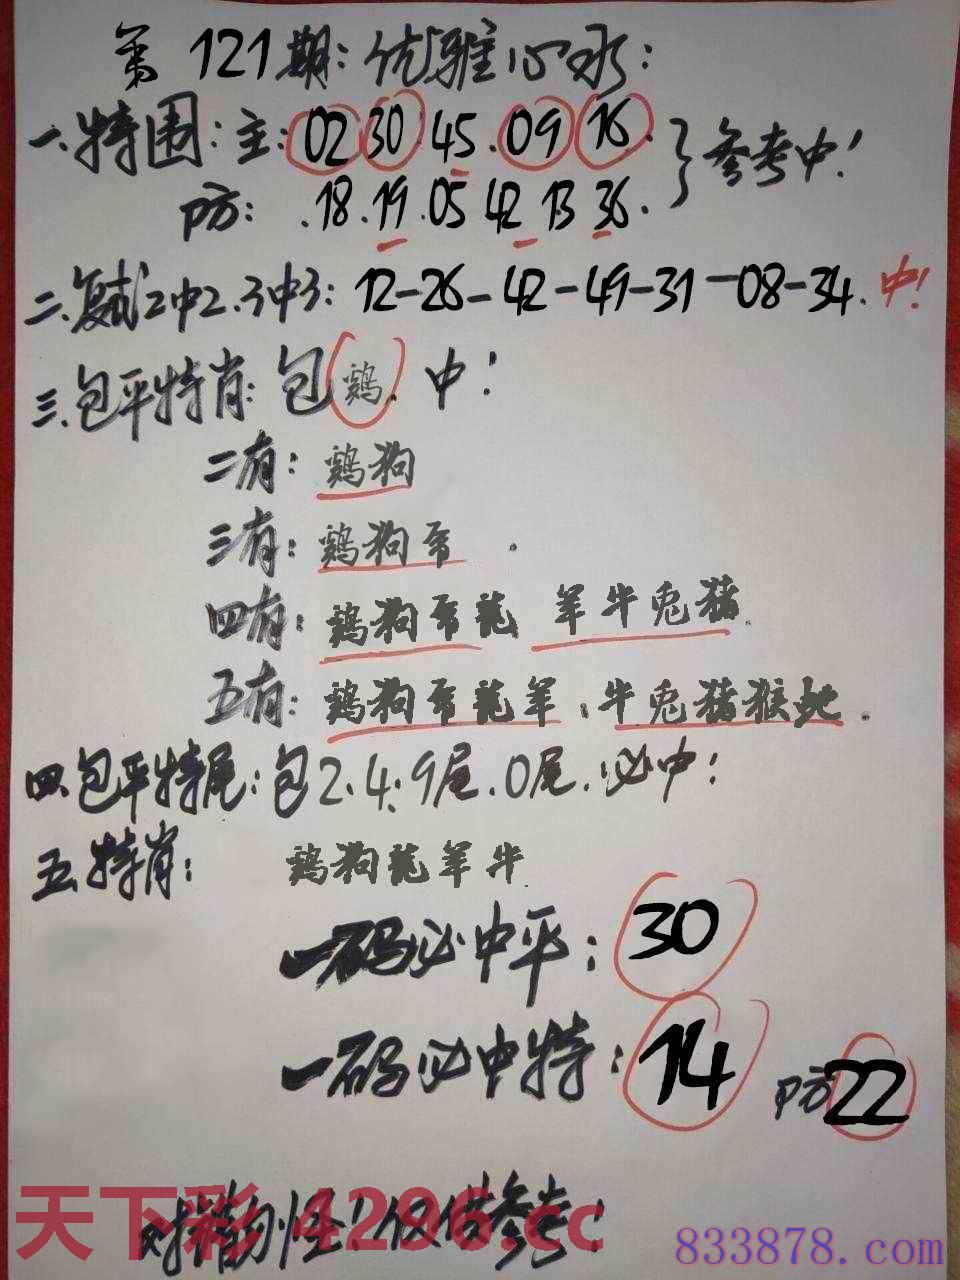 第121期:优雅心水:
一.特围:主:02 30 45.09 16.}参考中!
防:.18.19.05 42 13 36.
二.复试2中2.3中3:12-26-42-49-31-08-34.中!
三.包平特肖:包鷄.中!
二有:鷄狗
三有:鷄狗.
四有:鷄狗龍 羊牛兎猪.
五有:鷄狗龍羊:牛兎猪猴虵.
四.包平特尾:包2.4.9尾.0尾.必中!
五.特肖:鷄狗龍羊牛.
一码必中平:30
一码必中特:14 防22
天下彩 4296.cc
勿怪!仅供参考!
833878.com